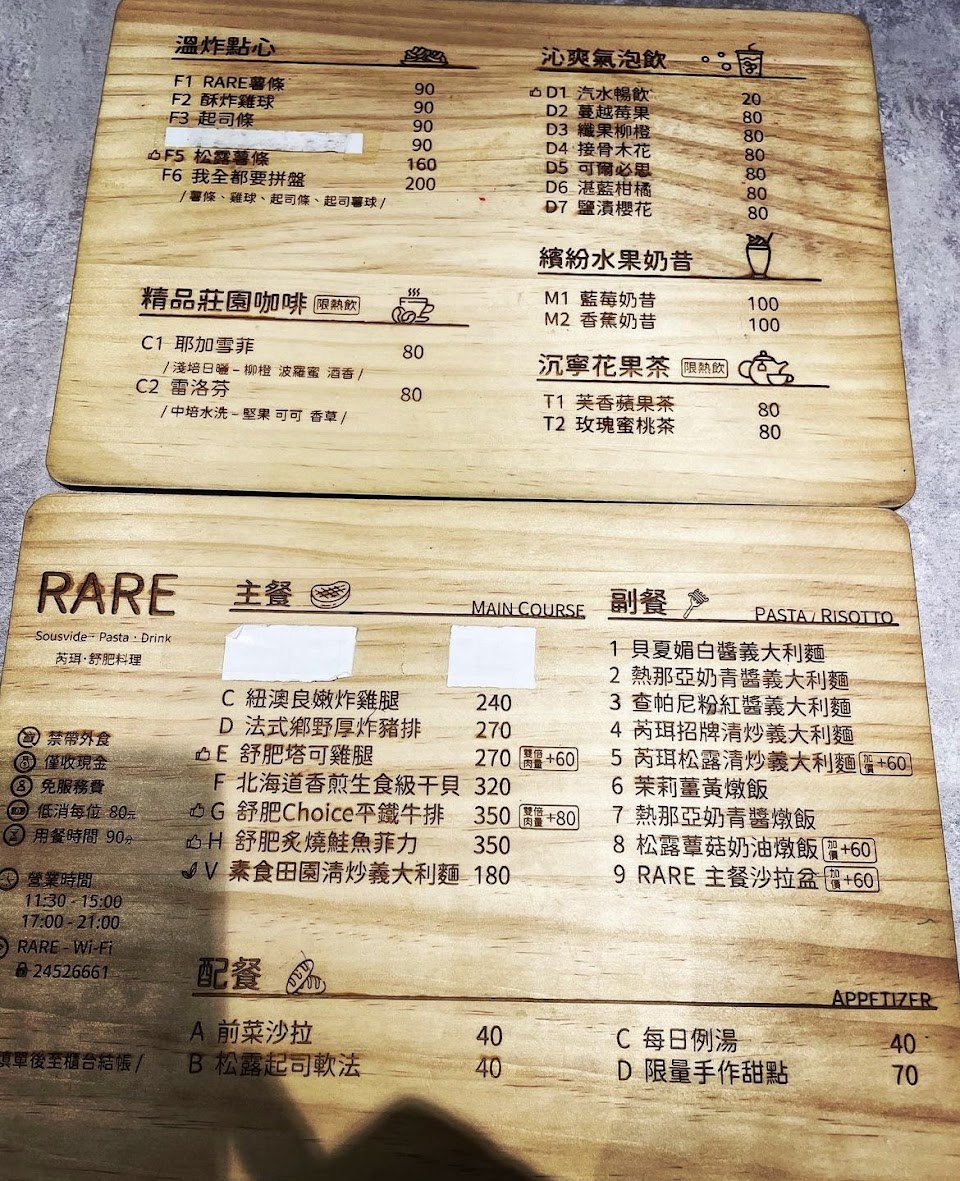 溫炸點心
F1 RARE薯條 90
F2 酥炸雞球 90
F3 起司條 90
90
F5 松露薯條 160
F6 我全都要拼盤 200
/ 薯條、雞球、起司條、起司薯球 /
精品莊園咖啡 限熱飲
C1 耶加雪菲 80
/ 淺培日曬 – 柳橙 波羅蜜 酒香 /
C2 雷洛芬 80
/ 中培水洗 – 堅果 可可 香草 /
沁爽氣泡飲
D1 汽水暢飲 20
D2 蔓越莓果 80
D3 纖果柳橙 80
D4 接骨木花 80
D5 可爾必思 80
D6 湛藍柑橘 80
D7 鹽漬櫻花 80
繽紛水果奶昔
M1 藍莓奶昔 100
M2 香蕉奶昔 100
沉寧花果茶 限熱飲
T1 芙香蘋果茶 80
T2 玫瑰蜜桃茶 80
RARE
Sousvide · Pasta · Drink
芮珥·舒肥料理
禁帶外食
僅收現金
免服務費
低消每位 80元
用餐時間 90分
營業時間
11:30 - 15:00
17:00 - 21:00
RARE - Wi-Fi
24526661
填單後至櫃台結帳 /
主餐 MAIN COURSE
C 紐澳良嫩炸雞腿 240
D 法式鄉野厚炸豬排 270
E 舒肥塔可雞腿 270 雙倍肉量 +60
F 北海道香煎生食級干貝 320
G 舒肥Choice平鐵牛排 350 雙倍肉量 +80
H 舒肥炙燒鮭魚菲力 350
V 素食田園清炒義大利麵 180
副餐 PASTA / RISOTTO
1 貝夏媚白醬義大利麵
2 熱那亞奶青醬義大利麵
3 查帕尼粉紅醬義大利麵
4 芮珥招牌清炒義大利麵
5 芮珥松露清炒義大利麵 加價 +60
6 茉莉薑黃燉飯
7 熱那亞奶青醬燉飯
8 松露蕈菇奶油燉飯 加價 +60
9 RARE 主餐沙拉盆 加價 +60
配餐 APPETIZER
A 前菜沙拉 40
B 松露起司軟法 40
C 每日例湯 40
D 限量手作甜點 70